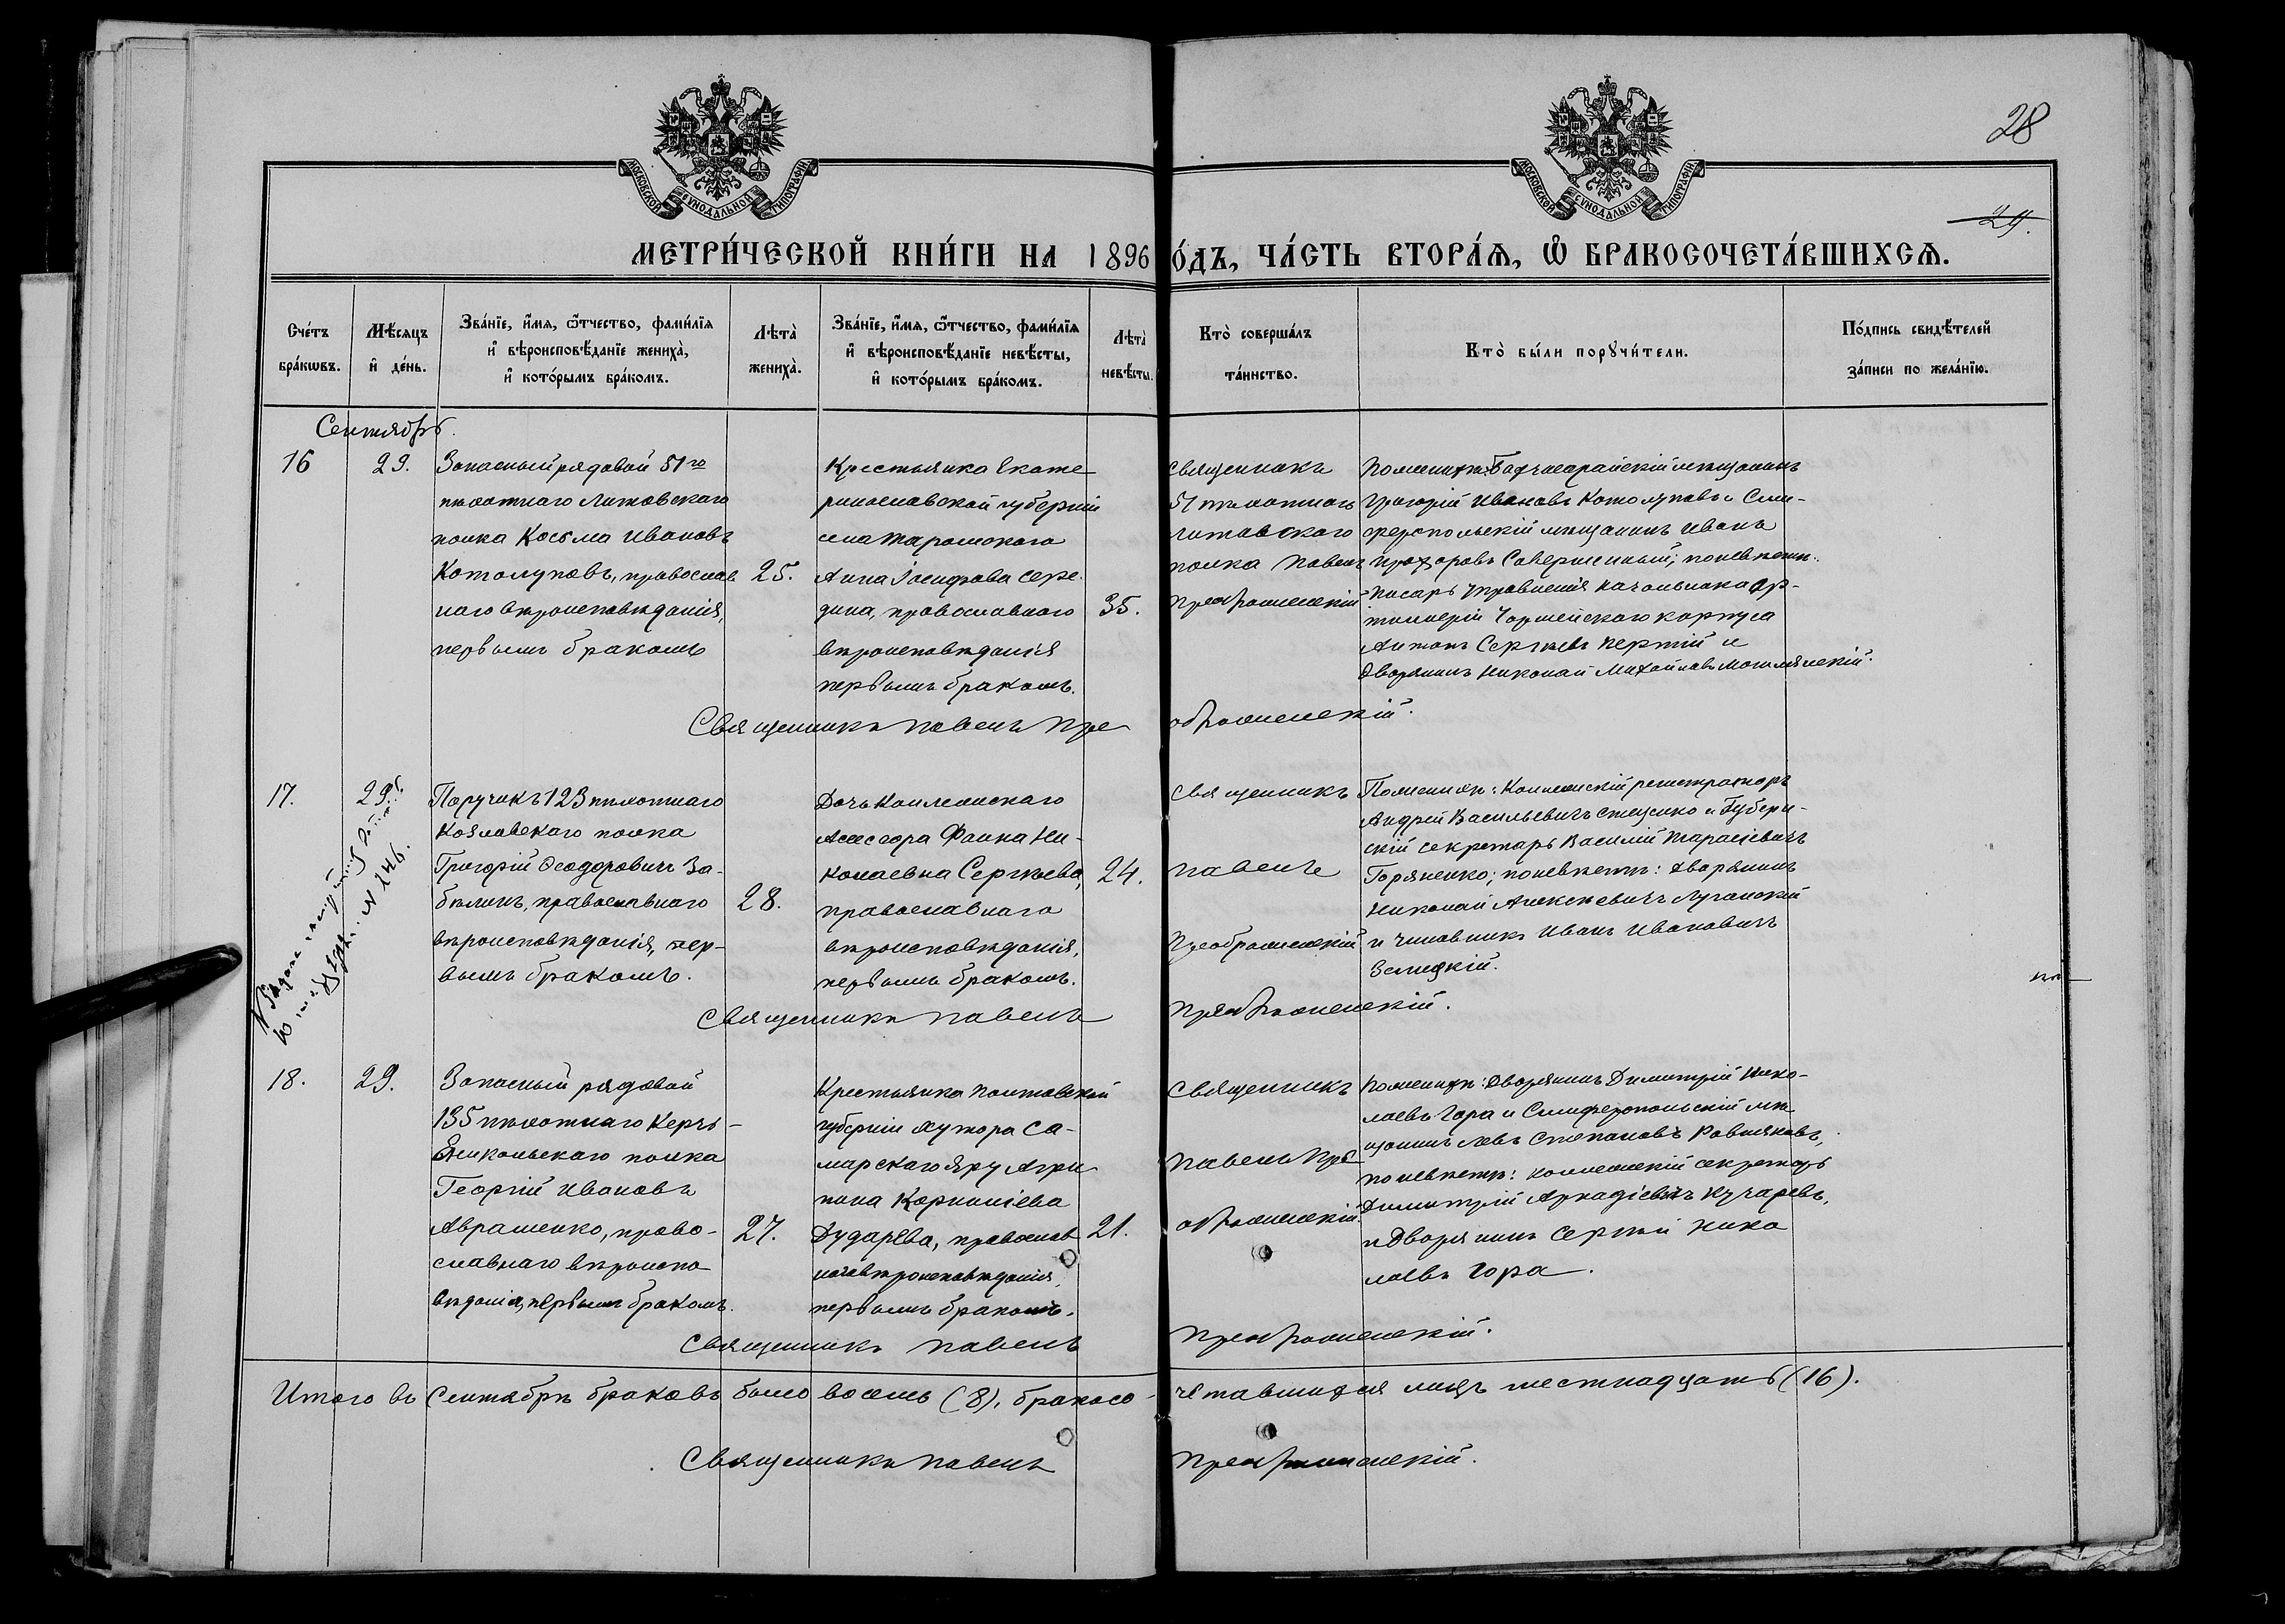 28
29.
МОСКОВСКОЙ СѴНОДАЛЬНОЙ ТИПОГРАФІИ
МОСКОВСКОЙ СѴНОДАЛЬНОЙ ТИПОГРАФІИ
МЕТРИ́ЧЕСКОЙ КНИ́ГИ НА 1896 О́ДЪ, ЧА́СТЬ ВТОРА́Я, Ѡ҆ БРАКОСОЧЕТА́ВШИХСЯ.
Сче́тъ бра́кѡвъ.
Мѣ́сяцъ и҆ де́нь.
Зва́нїе, и҆́мя, ѻ҆́тчество, фами́лїя
и҆ вѣроисповѣ́данїе жениха̀,
и҆ кото́рымъ бра́комъ.
Лѣта̀ жениха̀.
Зва́нїе, и҆́мя, ѻ҆́тчество, фами́лїя
и҆ вѣроисповѣ́данїе невѣ́сты,
и҆ кото́рымъ бра́комъ.
Лѣта̀ невѣ́сты.
Кто̀ соверша́лъ
та́инство.
Кто̀ бы́ли порꙋчи́тели.
По́дпись свидѣ́телей
за́писи по жела́нїю.
Сентябрь.
16
29.
Запасный рядовой 51го
пѣхотнаго Литовскаго
полка Косьма Ивановъ
Котолуповъ, православ
наго вѣроисповѣданія,
первымъ бракомъ
25.
Крестьянка Екате
ринославской губерніи
села Таромскаго
Анна Іосифова Сере
дина, православнаго
вѣроисповѣданія
первымъ бракомъ.
35.
Священникъ
51 пѣхотнаго
Литовскаго
полка Павелъ
Преображенскій
По женихѣ: Бахчисарайскій мѣщанинъ
Григорій Ивановъ Котолуповъ и Сим-
феропольскій мѣщанинъ Иванъ
Прохоровъ Совершенный; по невѣстѣ:
писарь Управленія Начальника Ар-
тиллеріи Армейскаго корпуса
Антонъ Сергѣевъ и
Дворянинъ Николай Михайловъ
Священникъ Павелъ Пре ображенскій.
17.
29.
Поручикъ 123 пѣхотнаго
Козловскаго полка
Григорій Ѳеодоровичъ За-
бѣлинъ, православнаго
вѣроисповѣданія, пер-
вымъ бракомъ.
28.
Дочь Коллежскаго
Ассесора Фаина Ни-
колаевна Сергѣева,
православнаго
вѣроисповѣданія,
первымъ бракомъ.
24.
Священникъ
Павелъ
Преображенскій
По женихѣ: Коллежскій регистраторъ
Андрей Васильевичъ Стеценко и Губерн-
скій секретарь Василій Тарасіевичъ
Горяненко; по невѣстѣ: Дворянинъ
Николай Алексѣевичъ Луганскій
и чиновникъ Иванъ Ивановичъ
№ 246.
Священникъ Павелъ Преображенскій.
18.
29.
Запасный рядовой
135 пѣхотнаго Керчь-
Еникольскаго полка
Георгій Ивановъ
Авраменко, право-
славнаго вѣроиспо
вѣданія, первымъ бракомъ.
27.
Крестьянка Полтавской
губерніи хутора Са-
марскаго Яру Агри
пина Корниліева
Дударева, православ
наго вѣроисповѣданія,
первымъ бракомъ.
21.
Священникъ
Павелъ Пре
ображенскій.
По женихѣ: Дворянинъ Димитрій Нико-
лаевъ Гора и Симферопольскій мѣ
щанинъ Левъ Степановъ Ровняковъ,
по невѣстѣ: коллежскій секретарь
Димитрій Аркадіевичъ Кучаревъ,
и Дворянинъ Сергѣй Нико
лаевъ Гора.
Священникъ Павелъ Преображенскій.
Итого въ Сентябрѣ браковъ было восемь (8), бракосо- четавшихся лицъ шестнадцать (16).
Священникъ Павелъ Преображенскій.